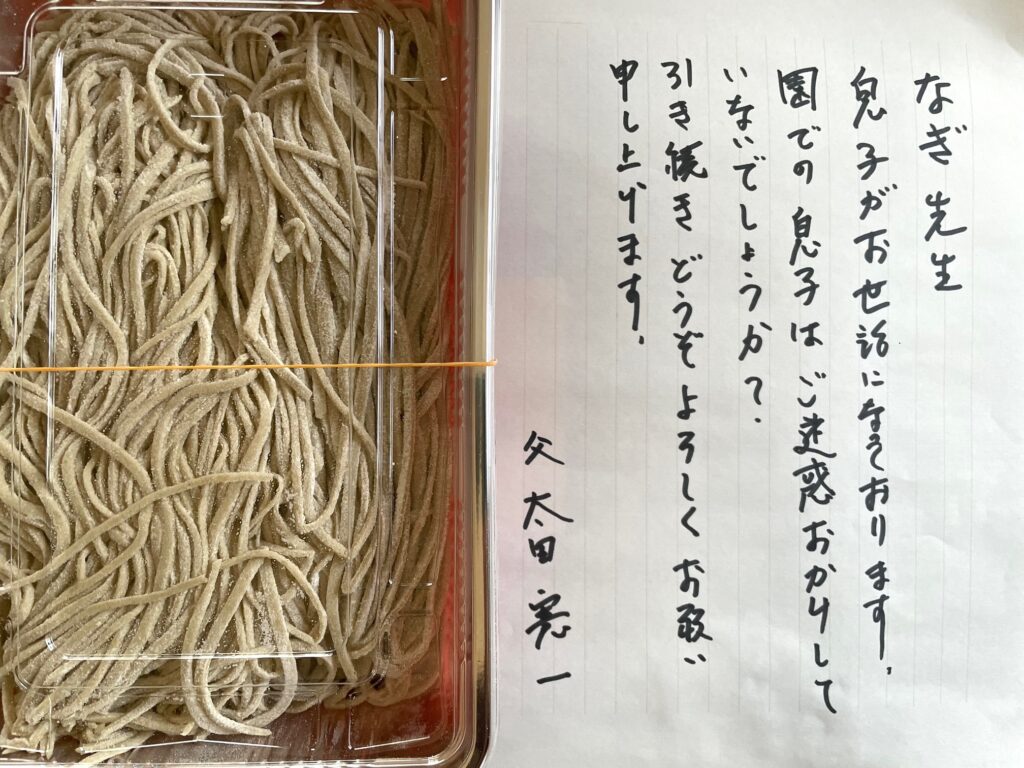 なぎ先生
息子がお世話になっております。
園での息子はご迷惑おかけして
いないでしょうか?
引き続きどうぞよろしくお願い
申し上げます。
父 太田寛一